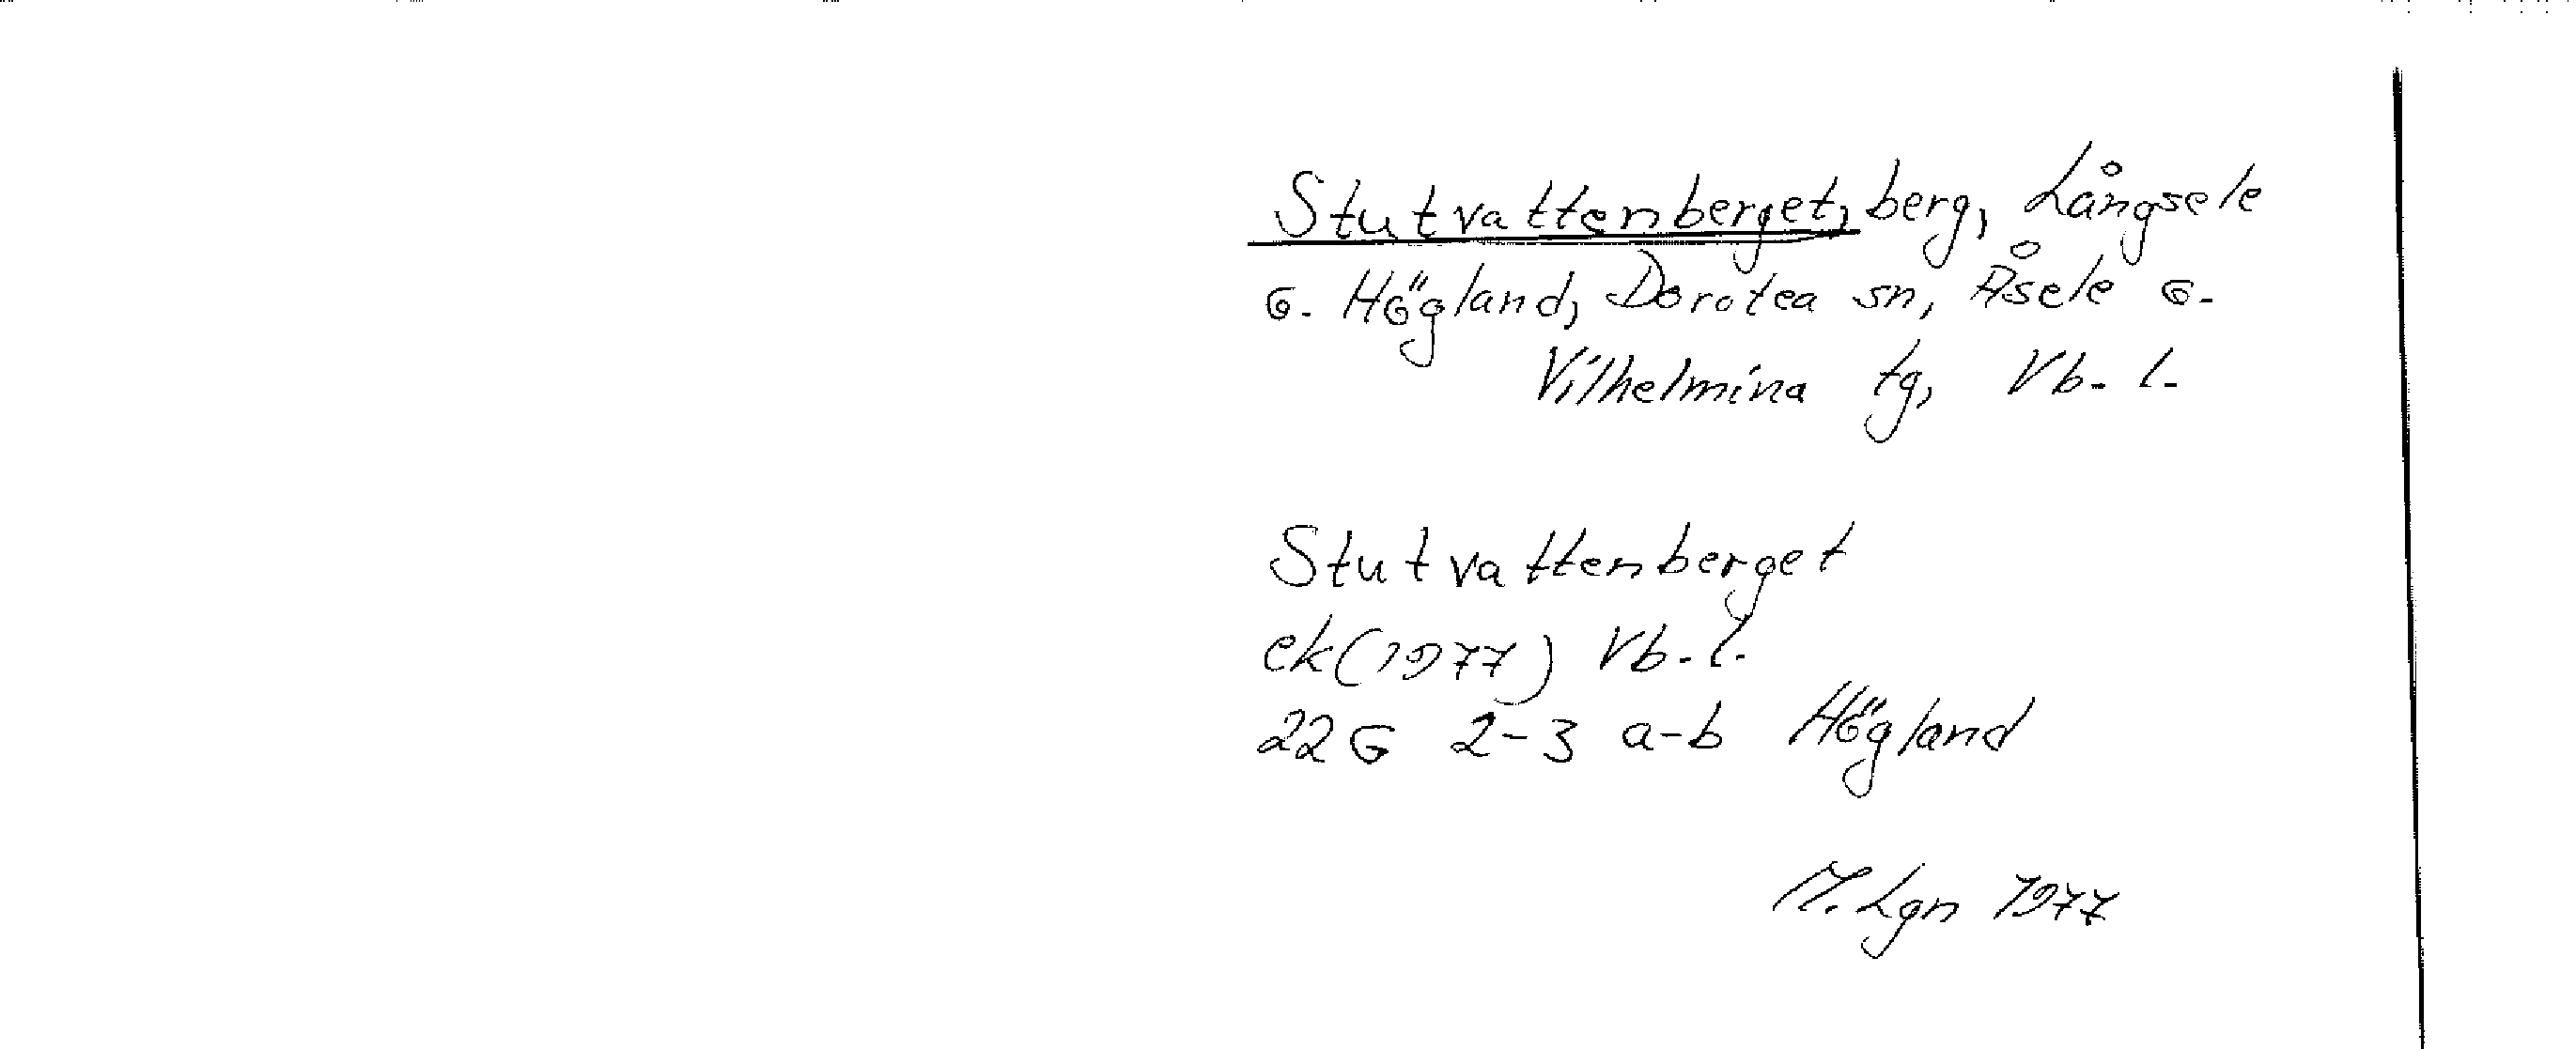 Stutvattenberget, berg, Långsele
o. Högland, Dorotea sn, Åsele o.
Vilhelmina tg, Vb. l.
Stutvattenberget
ek (1977) Vb. l.
22 G 2-3 a-b Högland
M. Lgn 1977